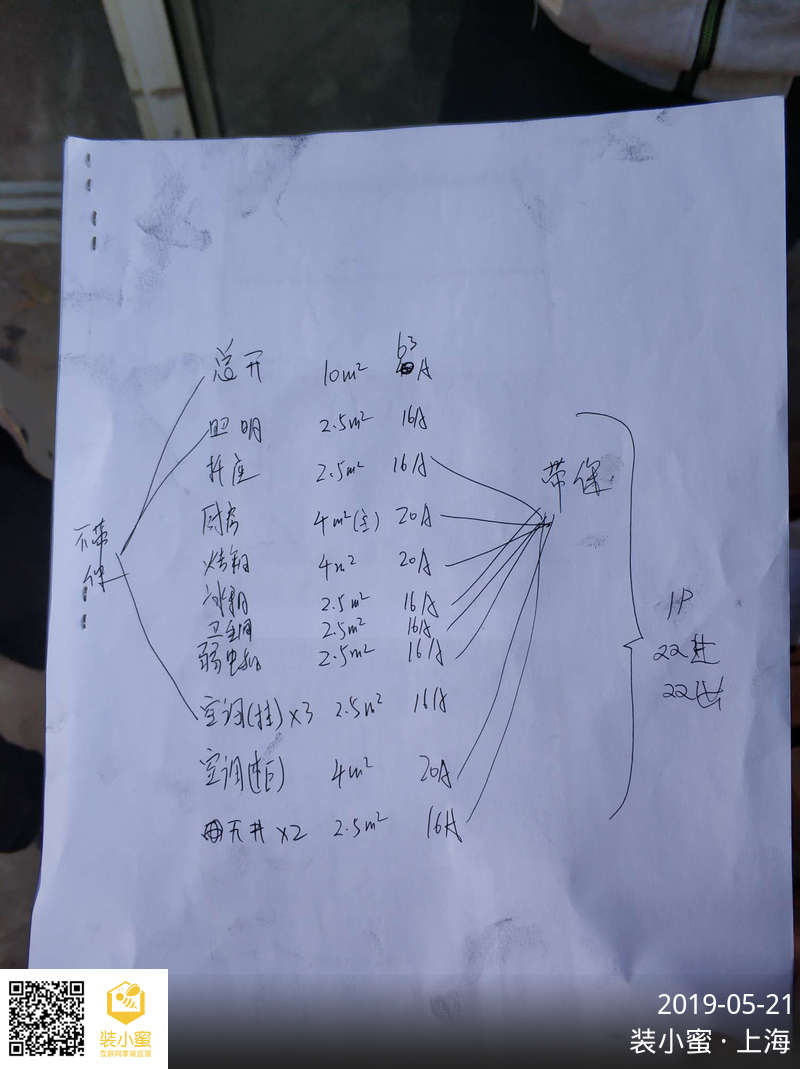 63
总开 10m² A
照明 2.5m² 16A
插座 2.5m² 16A
带保
厨房 4m²(主) 20A
不带保
烤箱 4m² 20A
冰箱 2.5m² 16A
卫生间 2.5m² 16A
弱电箱 2.5m² 16A
1P
22进
22出
空调(挂)×3 2.5m² 16A
空调(柜) 4m² 20A
天井×2 2.5m² 16A
2019-05-21
装小蜜·上海
装小蜜
互联网家装监理